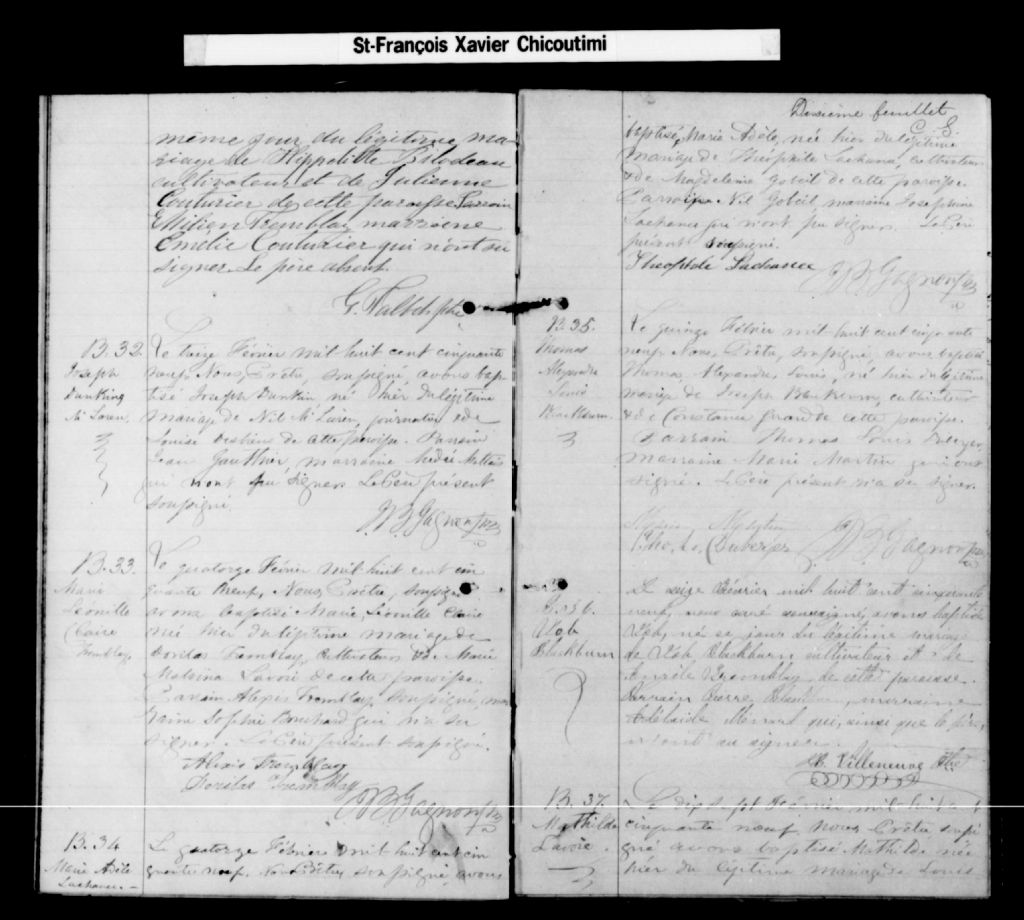 St-François Xavier Chicoutimi
même jour du légitime ma-
riage de Hippolitte Bilodeau
cultivateur et de Julienne
Couturier de cette paroisse Parrain
Milien Tremblay marraine
Emelie Couturier qui n'ont su
signer. Le père absent.
G. Talbot ptre
B. 32.
Joseph
Dunking
Le treize Février mil huit cent cinquante
neuf, Nous, Prêtre, soussigné, avons bap-
tisé Joseph Dunkin né hier du légitime
mariage de Nil journalier & de
Louise de cette paroisse. Parrain
Jean Gauthier, marraine
qui n'ont pu signer. Le Père présent
soussigné.
J B Gagnon ptre
B. 33.
Marie
Leonille
Claire
Tremblay.
Le quatorze Février mil huit cent cin
quante neuf, Nous, Prêtre, soussigné
avons baptisé Marie, Léonille Claire
née hier du légitime mariage de
Dorilas Tremblay, cultivateur & de Marie
Malvina Lavoie de cette paroisse.
Parrain Alexis Tremblay, soussigné, mar
raine Sophie Bouchard qui n'a su
signer. Le Père présent soussigné.
Alexis Tremblay
Dorilas Tremblay
J B Gagnon ptre
B. 34
Marie Adèle
Lachance.
Le quatorze Février mil huit cent cin
quante neuf, Nous Prêtre, soussigné, avons
Dixième feuillet
C. S.
baptisé, Marie Adèle, né hier du légitime
mariage de Théophile Lachance, cultivateur
& de Magdeleine Gobeil de cette paroisse.
Parrain Nil Gobeil marraine Josephine
Lachance qui n'ont pu signer. Le Père
présent soussigné.
Theophile Lachance
J B Gagnon ptre
B. 35.
Thomas
Alexandre
Louis
Blackburn.
Le quinze Février mil huit cent cinquante
neuf, Nous, Prêtre, soussigné, avons baptisé
Thomas, Alexandre, Louis, né hier du légitime
mariage de Joseph Blackburn, cultivateur
& de Constance de cette paroisse.
Parrain Thomas Louis
marraine Marie Martin qui ont
signé. Le Père présent n'a su signer.
Marie Martin
J B Gagnon ptre
B. 36.
Ulob
Blackburn
Le seize Février mil huit cent cinquante
neuf, nous curé soussigné, avons baptisé
né ce jour du légitime mariage
de Blackburn cultivateur et de
Tremblay de cette paroisse.
Parrain Pierre Blackburn, marraine
Adélaïde qui, ainsi que le père,
n'ont su signer.
Villeneuve Ptre
B. 37.
Mathilde
Lavoie.
Le dix sept Février mil huit cent
cinquante neuf, nous Prêtre soussi
gné avons baptisé Mathilde née
hier du légitime mariage de Louis